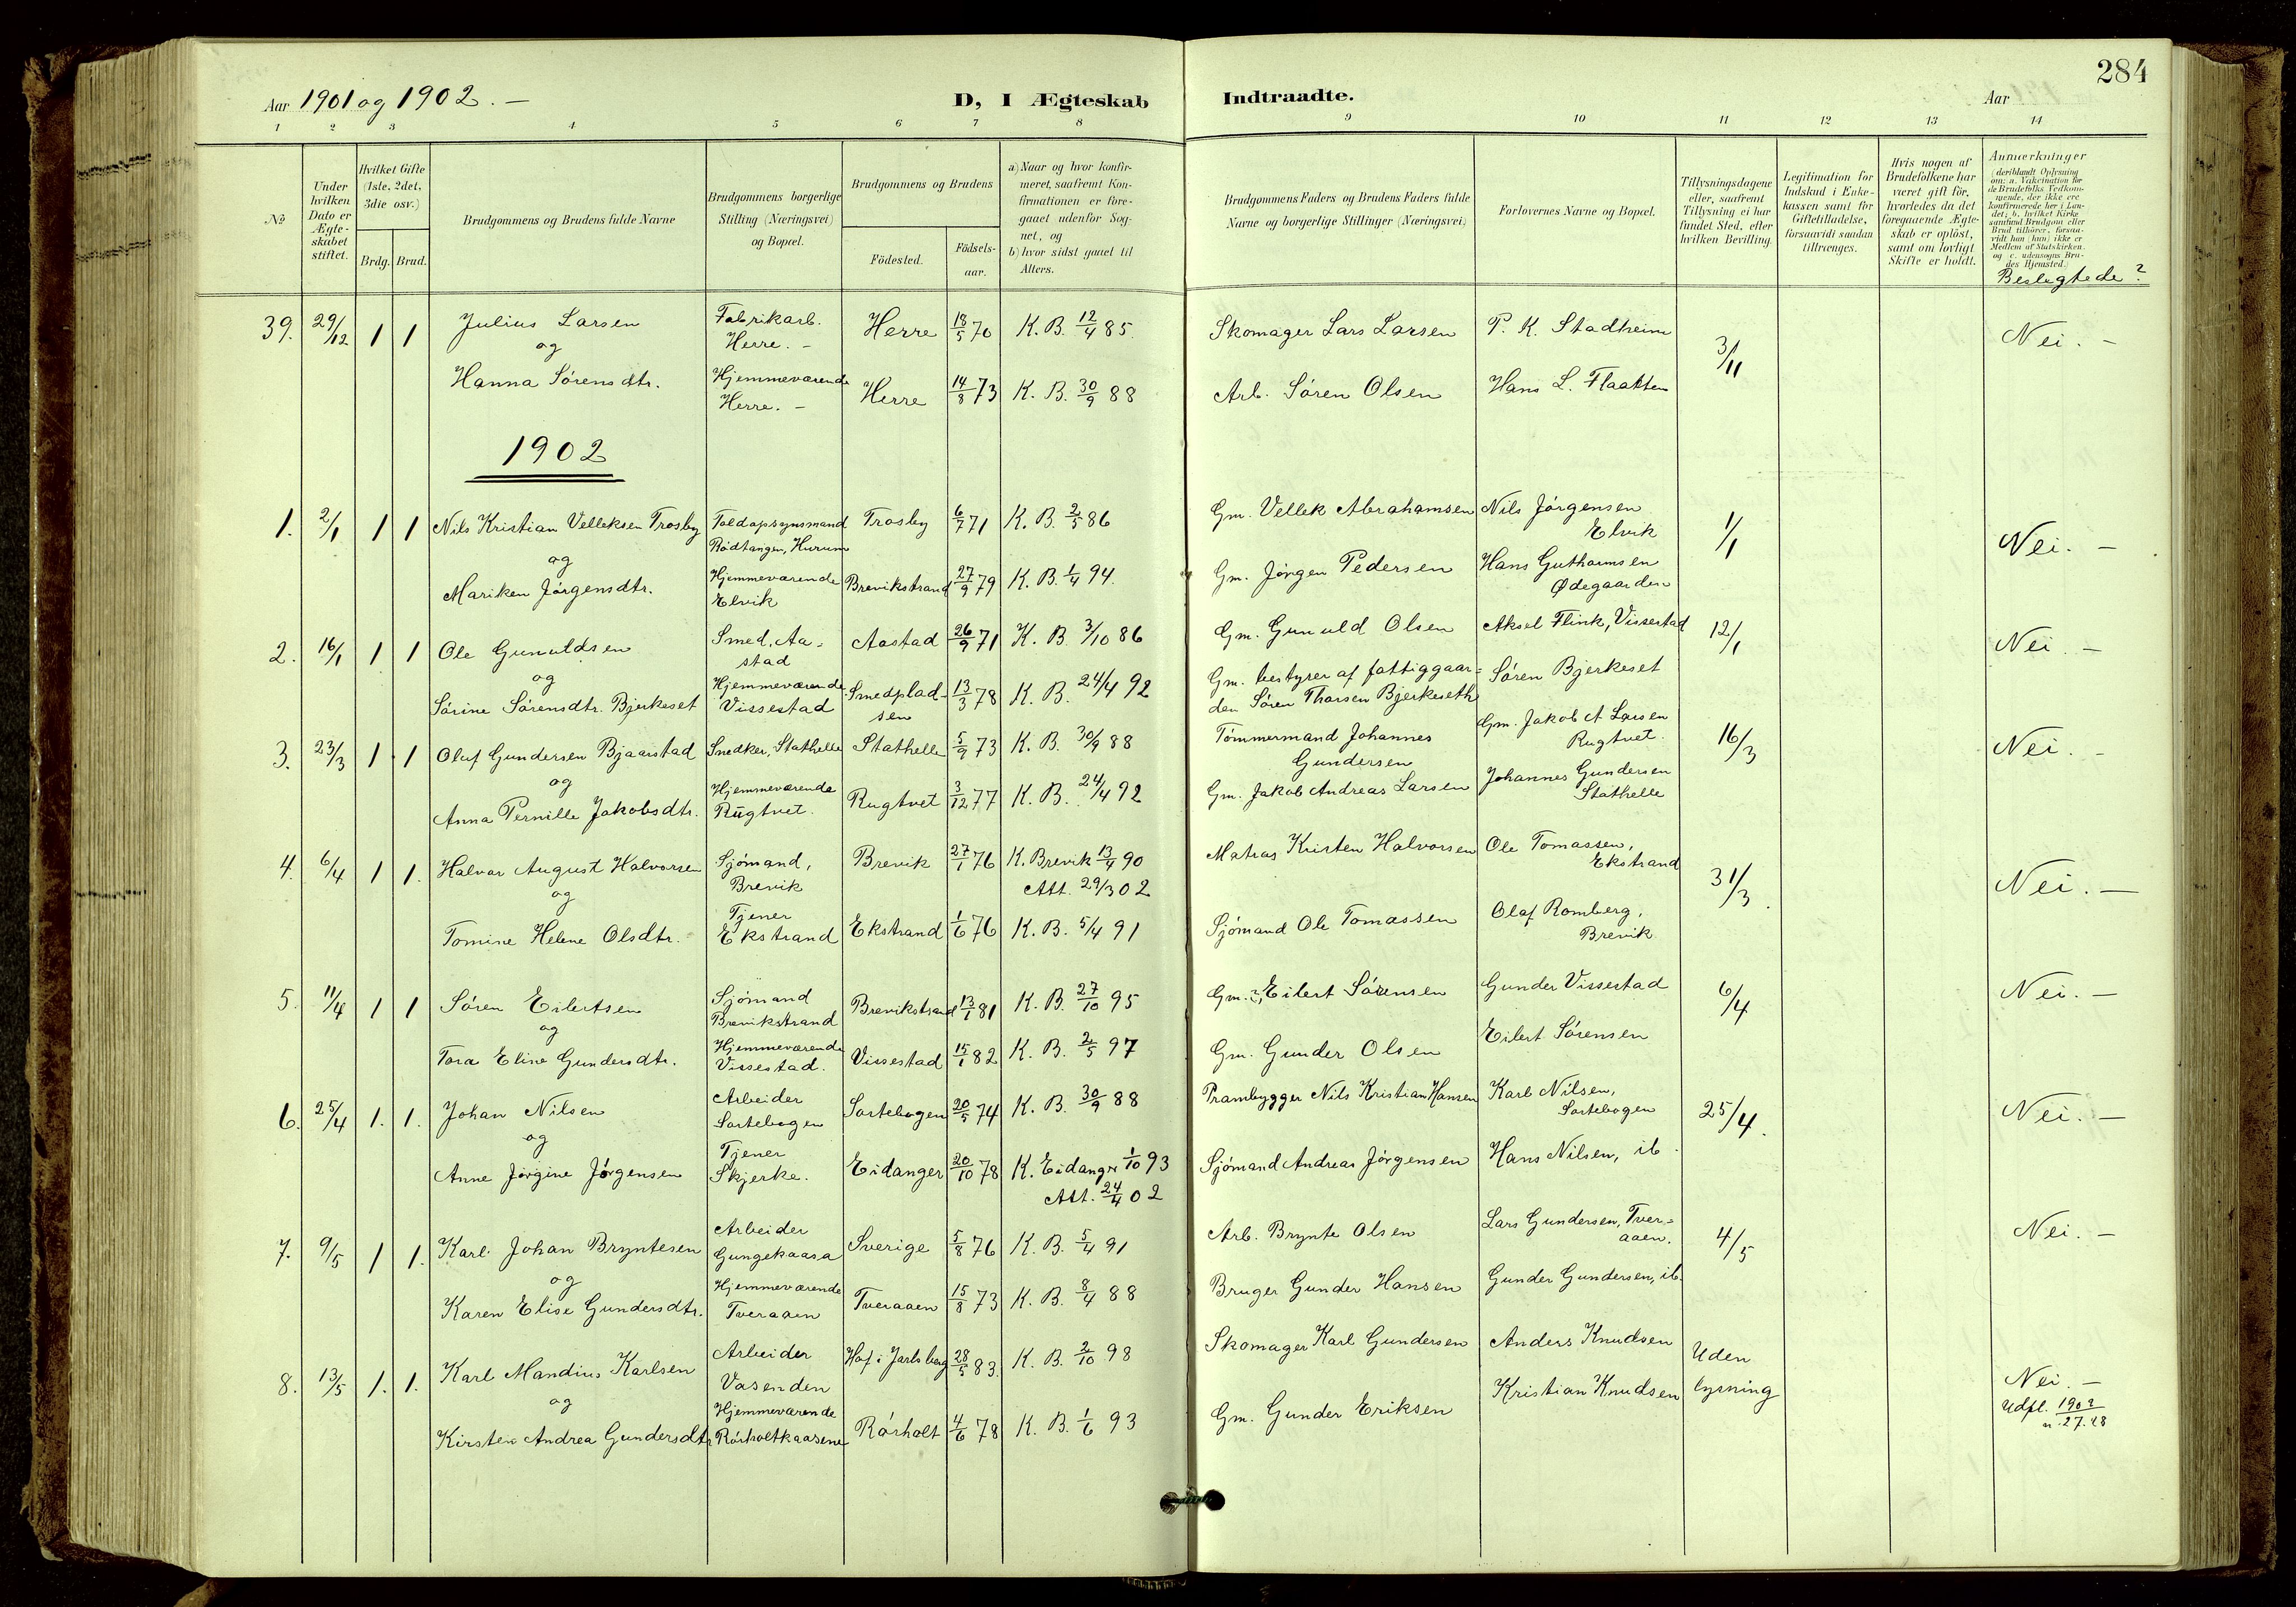 284
Aar 1901 og 1902. –
D, I Ægteskab Indtraadte.
Aar
1 2 3 4 5 6 7 8 9 10 11 12 13 14
No
Under hvilken Dato er Ægteskabet stiftet.
Hvilket Gifte (1ste, 2det, 3die osv.)
Brdg. Brud.
Brudgommens og Brudens fulde Navne
Brudgommens borgerlige Stilling (Næringsvei) og Bopæl.
Brudgommens og Brudens
Födested.
Födsels-aar.
a) Naar og hvor konfir-
meret, saafremt Kon-
firmationen er fore-
gaaet udenfor Sog-
net, og
b) hvor sidst gaaet til
Alters.
Brudgommens Faders og Brudens Faders fulde
Navne og borgerlige Stillinger (Næringsvei)
Forlovernes Navne og Bopæl.
Tillysningsdagene
eller, saafremt
Tillysning ei har
fundet Sted, efter
hvilken Bevilling.
Legitimation for
Indskud i Enke-
kassen samt for
Giftetilladelse,
forsaavidt saadan
tiltrænges.
Hvis nogen af
Brudefolkene har
været gift för,
hvorledes da det
foregaaende Ægte-
skab er oplöst,
samt om lovligt
Skifte er holdt.
Anmerkninger
(deriblandt Oplysning
om: a. Vakcination for
de Brudefolks Vedkom-
mende, der ikke ere
konfirmerede her i Lan-
det; b. hvilket Kirke
samfund Brudgom eller
Brud tilhörer, forsaa-
vidt han (hun) ikke er
Medlem af Statskirken.
og c. udensogns Bru-
des Hjemsted.)
Beslegtede?
39. 29/12 1 1 Julius Larsen Fabrikarb. Herre. – Herre 18/5 70 K. B. 12/4 85. Skomager Lars Larsen P. K. Stadheim 3/11 Nei. –
og
Hanna Sørensdtr. Hjemmeværende Herre. – Herre 14/8 73 K. B. 30/9 88 Arb. Søren Olsen Hans L. Flaatten
1902
1. 2/1 1 1 Nils Kristian Velleksen Trosby Toldopsynsmand Rødtangen, Hurum Trosby 6/7 71 K. B. 2/5 86 Gm. Vellek Abrahamsen Nils Jørgensen Elvik 1/1 Nei. –
og
Mariken Jørgensdtr. Hjemmeværende Elvik Brevikstrand 27/9 79 K. B. 1/4 94. Gm. Jørgen Pedersen Hans Guthormsen Ødegaarden
2. 16/1 1 1 Ole Gunuldsen Smed, Aastad Aastad 26/9 71 K. B. 3/10 86 Gm. Gunuld Olsen Aksel Flink, Vissestad 12/1 Nei. –
og
Sørine Sørensdtr. Bjerkeset Hjemmeværende Vissestad Smedpladsen 13/3 78 K. B. 24/4 92 Gm. bestyrer af fattiggaarden Søren Thorsen Bjerkeseth Søren Bjerkeset
3. 23/3 1 1 Oluf Gundersen Bjaarstad Snedker, Stathelle Stathelle 5/9 73 K. B. 30/9 88 Tømmermand Johannes Gundersen Gm. Jakob A Larsen Rugtvet. 16/3 Nei. –
og
Anna Pernille Jakobsdtr. Hjemmeværende Rugtvet. Rugtvet 3/12 77 K. B. 24/4 92 Gm. Jakob Andreas Larsen Johannes Gundersen Stathelle
4. 6/4 1 1. Halvor August Halvorsen Sjømand, Brevik Brevik 27/1 76 K. Brevik 13/4 90 Att. 29/3 02 Matros Kristen Halvorsen Ole Tomassen, Ekstrand 31/3. Nei. –
og
Tomine Helene Olsdtr. Tjener Ekstrand Ekstrand 1/6 76 K. B. 5/4 91 Sjømand Ole Tomassen Olaf Romberg, Brevik
5. 11/4 1 1 Søren Eilertsen Sjømand Brevikstrand Brevikstrand 13/1 81 K. B. 27/10 95 Gm. Eilert Sørensen Gunder Vissestad 6/4 Nei. –
og
Tora Eline Gundersdtr. Hjemmeværende Vissestad. Vissestad 15/1 82 K. B. 2/5 97 Gm. Gunder Olsen Eilert Sørensen
6. 25/4 1. 1. Johan Nilsen Arbeider Sortebogen Sortebogen 20/5 74 K. B. 30/9 88 Prambygger Nils Kristian Hansen Karl Nilsen, Sortebogen 25/4. Nei. –
og
Anne Jørgine Jørgensen Tjener Skjerke. Eidanger 20/10 78 K. Eidangr 1/10 93 Att. 24/4 02 Sjømand Andreas Jørgensen Hans Nilsen, ib.
7. 9/5 1 1. Karl Johan Bryntesen Arbeider Gungekaasa Sverige 5/8 76 K. B. 5/4 91 Arb. Brynte Olsen Lars Gundersen, Tveraaen. 4/5 Nei. –
og
Karen Elise Gundersdtr. Hjemmeværende Tveraaen Tveraaen 15/8 73 K. B. 8/4 88 Bruger Gunder Hansen Gunder Gundersen, ib.
8. 13/5 1. 1. Karl Mandius Karlsen Arbeider Vasenden Hof i Jarlsberg 28/5 83. K. B. 2/10 98 Skomager Karl Gundersen Anders Knudsen Uden lysning Nei. –
og
Kirsten Andrea Gundersdtr Hjemmeværende Rørholtkaasene Rørholt 4/6 78 K. B. 1/6 93 Gm. Gunder Eriksen Kristian Knudsen Udfl. 1902 n. 27.28